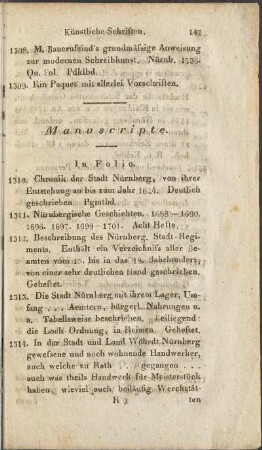 Künstliche Schriften. 147
1308. M. Bauernfeind's grundmässige Anweisung
zur modernen Schreibkunst. Nürnb. 1736.
Qu. Fol. Pdklbd.
1309. Ein Paquet mit allerlei Vorschriften.
Manuscripte.
In Folio.
1310. Chronik der Stadt Nürnberg, von ihrer
Entstehung an bis zum Jahr 1624. Deutlich
geschrieben. Pgmtbd.
1311. Nürnbergische Geschichten. 1688–1690.
1696. 1697. 1699–1701. Acht Hefte.
1312. Beschreibung des Nürnberg. Stadt-Regi-
ments. Enthält ein Verzeichniss aller Be-
amten vom bis in das 18. Jahrhundert,
von einer sehr deutlichen Hand geschrieben.
Geheftet.
1313. Die Stadt Nürnberg mit ihrem Lager, Um-
fang . . . Aemtern, bürgerl. Nahrungen u.
a. Tabellsweise beschrieben. Beiliegend:
die Loch Ordnung, in Reimen. Geheftet.
1314. In der Stadt und Land Wöhrdt Nürnberg
gewesene und noch wohnende Handwerker,
auch welche zu Rath gegangen . . .
auch was theils Handwerk für Meisterstück
haben, wieviel auch beiläufig Werckstät-
K 2 ten